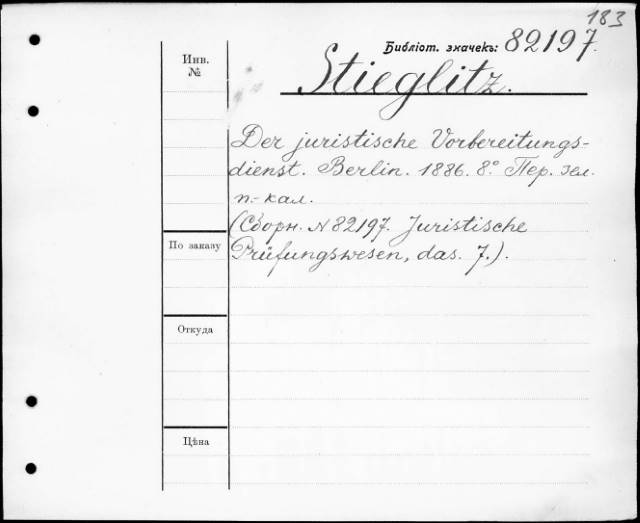 183
Библіот. значекъ: 82197.
Инв.
№
Stieglitz.
Der juristische Vorbereitungs-
dienst. Berlin. 1886. 8.° Пер. зел.
п.-кал.
(Сборн. N 82197. Juristische
Prüfungswesen, das. 7.).
По заказу
Откуда
Цѣна